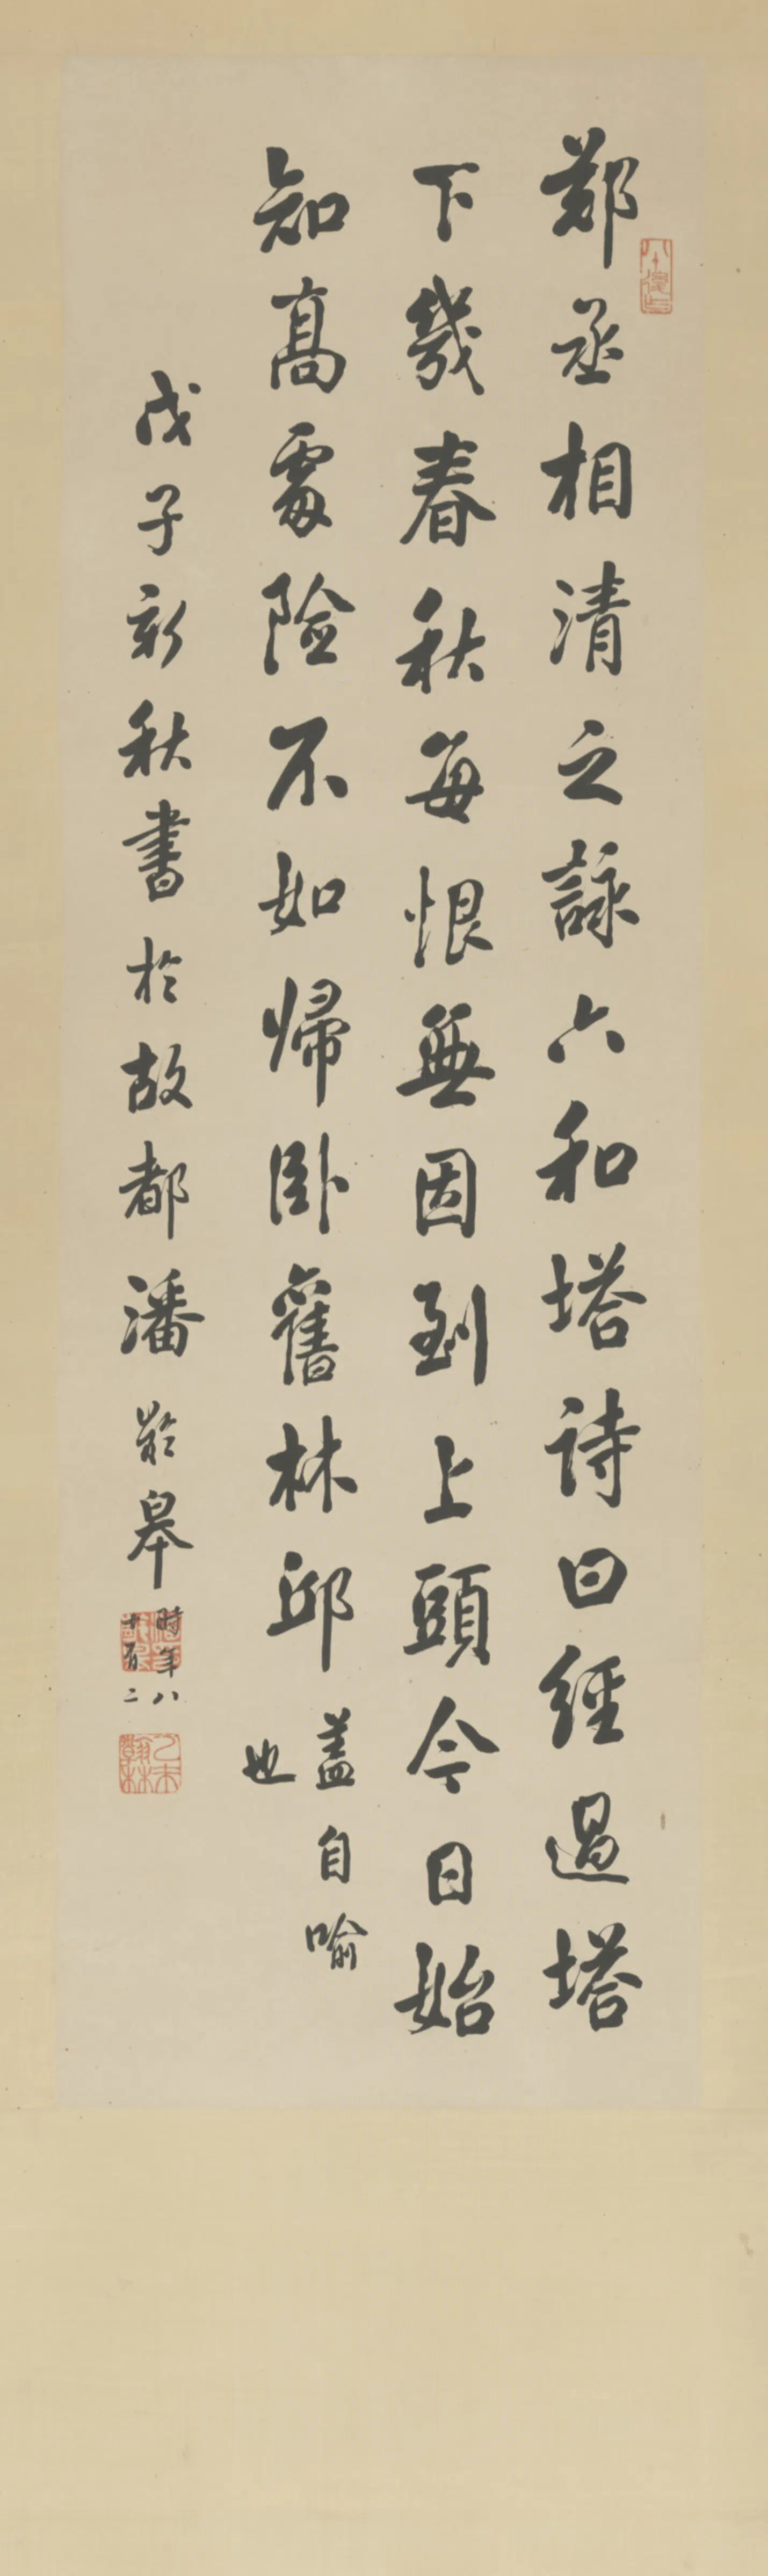 鄭丞相清之詠六和塔詩曰經過塔
下幾春秋每恨無因到上頭今日始
知高處險不如歸臥舊林邱
蓋自喻
也
戊子新秋書於故都潘齡皋
時年八
十有二
乙未翰林